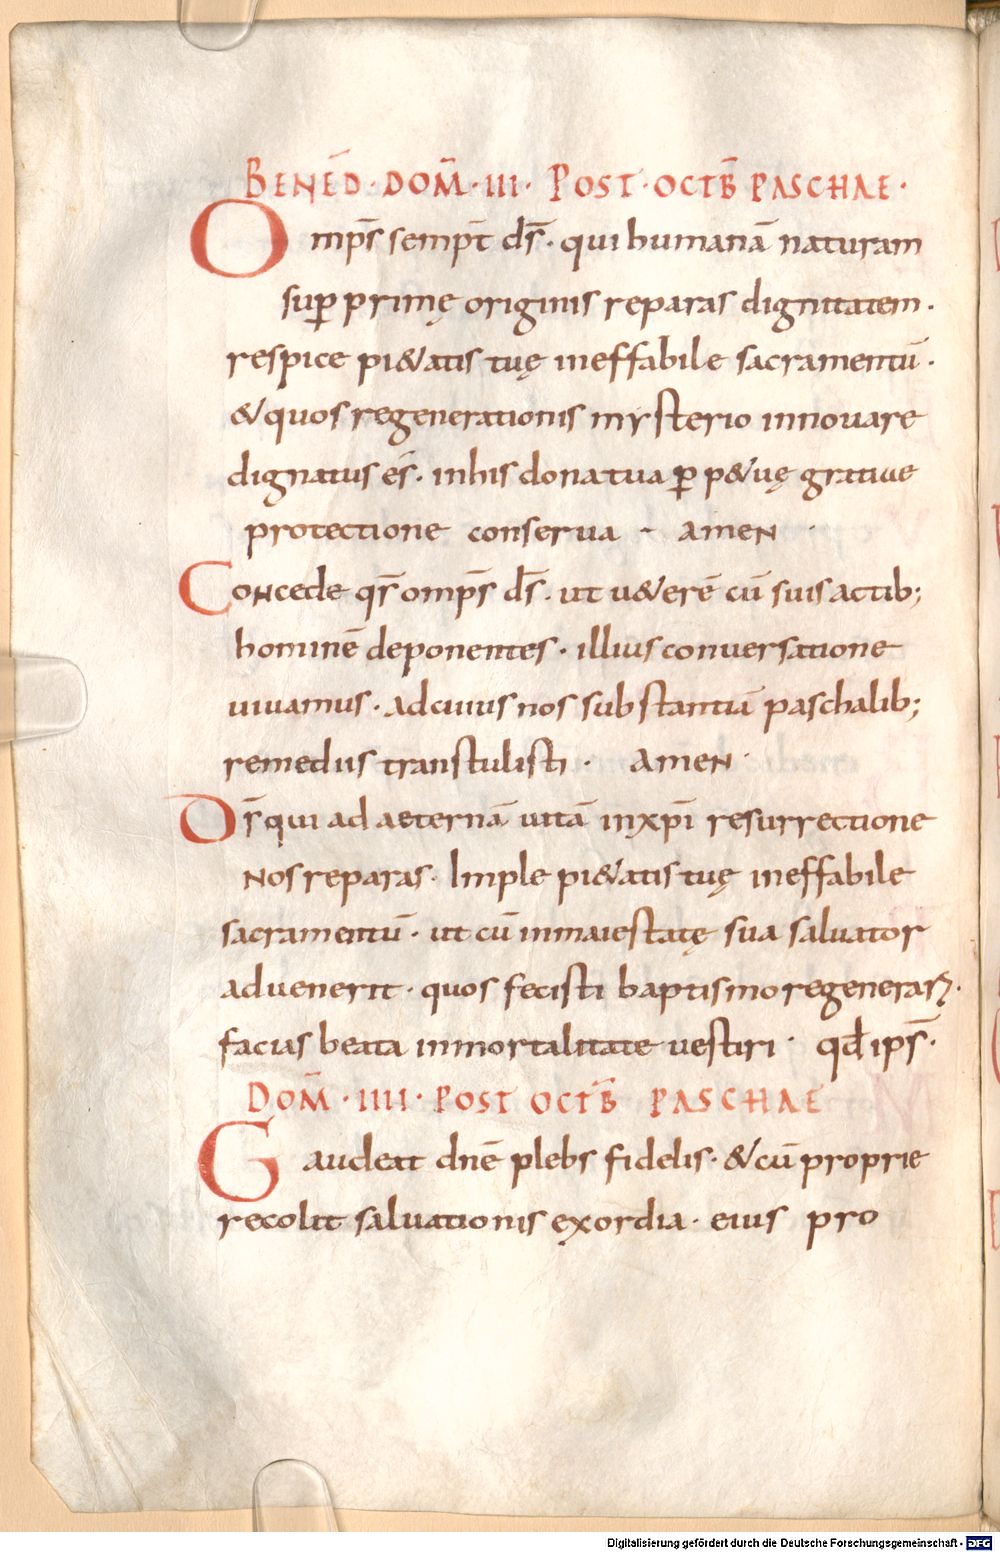 BENED̄·DOM̄·III· POST·OCTB̄ PASCHAE·
Omp̄s semp̄t d̄s· qui humanā naturam
sup̲ primę originis reparas dignitatem·
respice pi&atis tuę ineffabile sacramentū·
&quos regenerationis mysterio innouare
dignatus es̄· inhis dona tua p̲ p&uę gratiae
protectione conserua ~ AMEN
Concede qs̄ omp̄s d̄s· ut u&erē cū suis actib;
hominē deponentes· illius conuersatione
uiuamus· Ad cuius nos substantiā paschalib;
remediis transtulisti· AMEN·
D̄s qui ad aeternā uitā inxp̄i resurrectione
Nos reparas· Imple pi&atis tuę ineffabile
sacramentū· ut cū inmaiestatę sua saluator
aduenerit· quos fecisti baptismo regenerarꝫ·
facias beata inmortalitate uestiri· qđ ips̄·
DOM̄·IIII·POST OCTB̄ PASCHAE
Gaudeat dn̄e plebs fidelis· &cū proprie
recolit saluationis exordia· eius pro
Digitalisierung gefördert durch die Deutsche Forschungsgemeinschaft - DFG